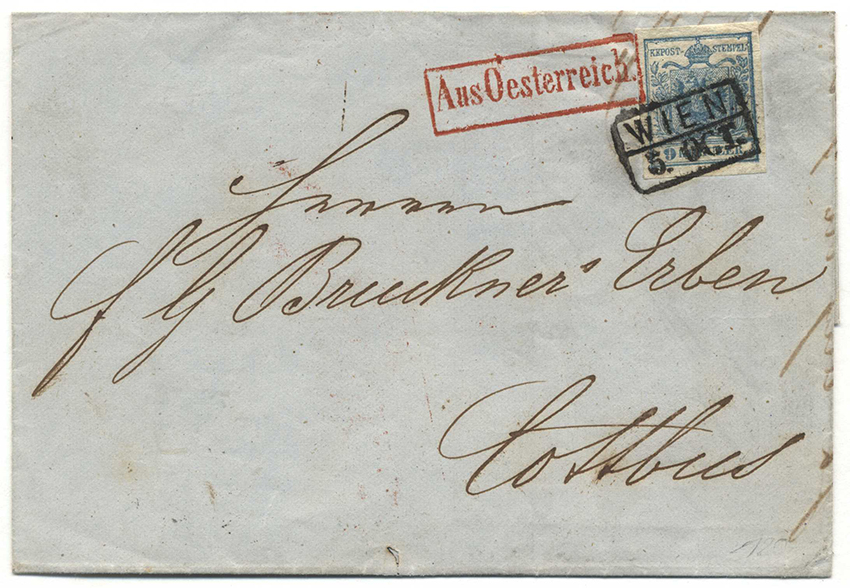 Aus Oesterreich.
KKPOST-STEMPEL
WIEN
5. OCT.
9
Herren
J G Bruckner's Erben
Cottbus